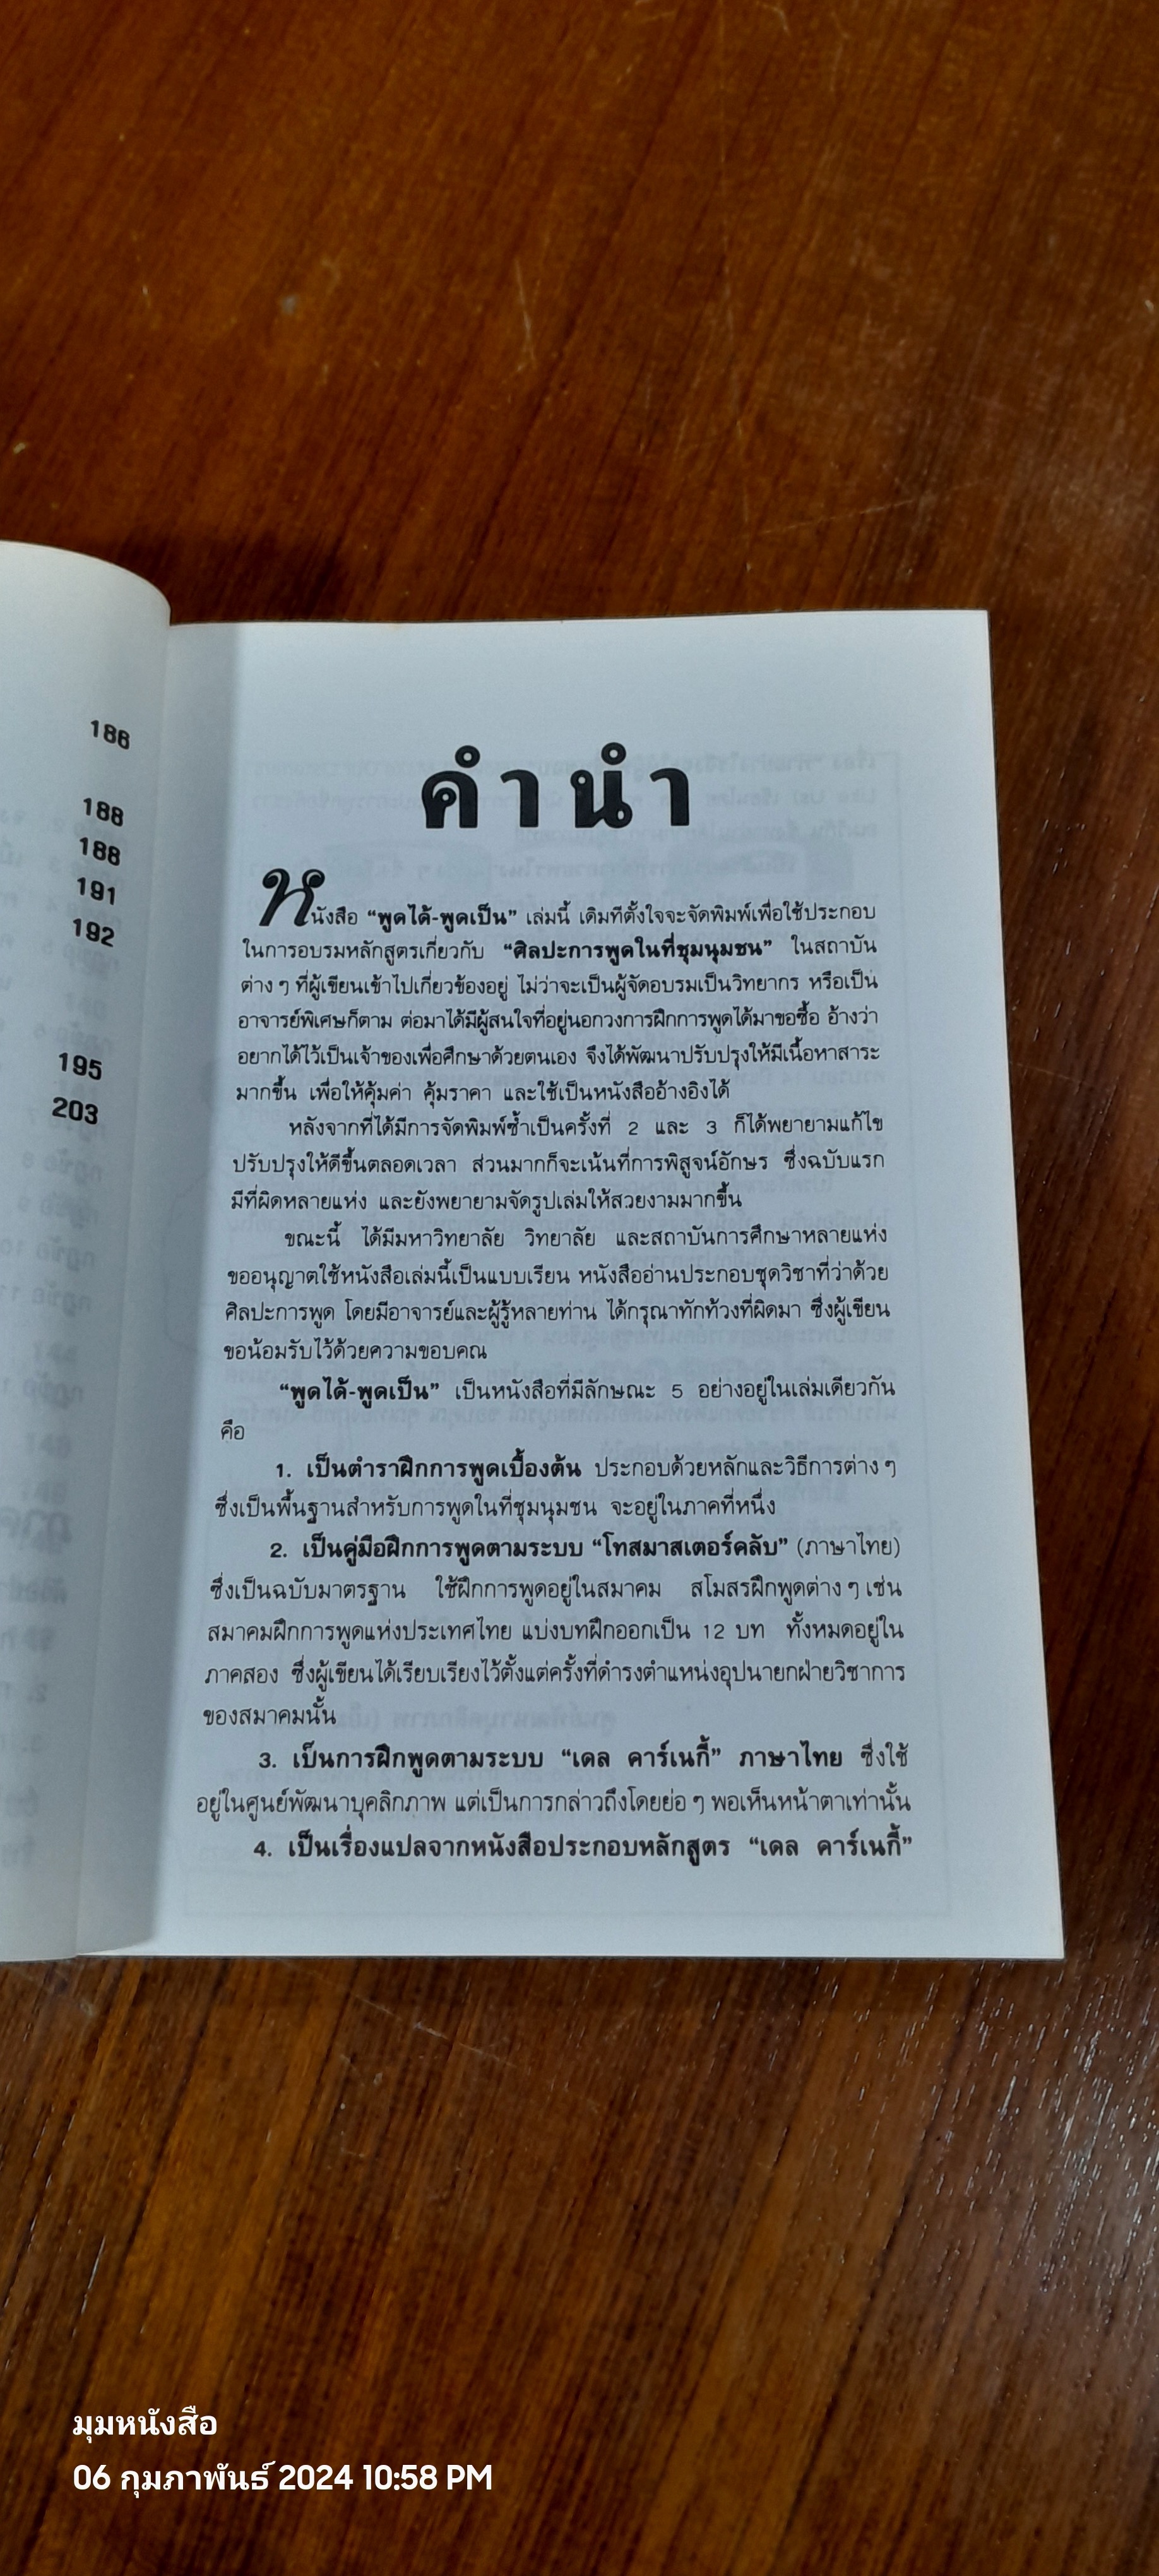 186
188
188
191
192
195
203
คำนำ
หนังสือ “พูดได้-พูดเป็น” เล่มนี้ เดิมทีตั้งใจจะจัดพิมพ์เพื่อใช้ประกอบ
ในการอบรมหลักสูตรเกี่ยวกับ “ศิลปะการพูดในที่ชุมนุมชน” ในสถาบัน
ต่าง ๆ ที่ผู้เขียนเข้าไปเกี่ยวข้องอยู่ ไม่ว่าจะเป็นผู้จัดอบรมเป็นวิทยากร หรือเป็น
อาจารย์พิเศษก็ตาม ต่อมาได้มีผู้สนใจที่อยู่นอกวงการฝึกการพูดได้มาขอซื้อ อ้างว่า
อยากได้ไว้เป็นเจ้าของเพื่อศึกษาด้วยตนเอง จึงได้พัฒนาปรับปรุงให้มีเนื้อหาสาระ
มากขึ้น เพื่อให้คุ้มค่า คุ้มราคา และใช้เป็นหนังสืออ้างอิงได้
หลังจากที่ได้มีการจัดพิมพ์ซ้ำเป็นครั้งที่ 2 และ 3 ก็ได้พยายามแก้ไข
ปรับปรุงให้ดีขึ้นตลอดเวลา ส่วนมากก็จะเน้นที่การพิสูจน์อักษร ซึ่งฉบับแรก
มีที่ผิดหลายแห่ง และยังพยายามจัดรูปเล่มให้สวยงามมากขึ้น
ขณะนี้ ได้มีมหาวิทยาลัย วิทยาลัย และสถาบันการศึกษาหลายแห่ง
ขออนุญาตใช้หนังสือเล่มนี้เป็นแบบเรียน หนังสืออ่านประกอบชุดวิชาที่ว่าด้วย
ศิลปะการพูด โดยมีอาจารย์และผู้รู้หลายท่าน ได้กรุณาทักท้วงที่ผิดมา ซึ่งผู้เขียน
ขอน้อมรับไว้ด้วยความขอบคุณ
“พูดได้-พูดเป็น” เป็นหนังสือที่มีลักษณะ 5 อย่างอยู่ในเล่มเดียวกัน
คือ
1. เป็นตำราฝึกการพูดเบื้องต้น ประกอบด้วยหลักและวิธีการต่าง ๆ
ซึ่งเป็นพื้นฐานสำหรับการพูดในที่ชุมนุมชน จะอยู่ในภาคที่หนึ่ง
2. เป็นคู่มือฝึกการพูดตามระบบ “โทสมาสเตอร์คลับ” (ภาษาไทย)
ซึ่งเป็นฉบับมาตรฐาน ใช้ฝึกการพูดอยู่ในสมาคม สโมสรฝึกพูดต่าง ๆ เช่น
สมาคมฝึกการพูดแห่งประเทศไทย แบ่งบทฝึกออกเป็น 12 บท ทั้งหมดอยู่ใน
ภาคสอง ซึ่งผู้เขียนได้เรียบเรียงไว้ตั้งแต่ครั้งที่ดำรงตำแหน่งอุปนายกฝ่ายวิชาการ
ของสมาคมนั้น
3. เป็นการฝึกพูดตามระบบ “เดล คาร์เนกี้” ภาษาไทย ซึ่งใช้
อยู่ในศูนย์พัฒนาบุคลิกภาพ แต่เป็นการกล่าวถึงโดยย่อ ๆ พอเห็นหน้าตาเท่านั้น
4. เป็นเรื่องแปลจากหนังสือประกอบหลักสูตร “เดล คาร์เนกี้”
มุมหนังสือ
06 กุมภาพันธ์ 2024 10:58 PM